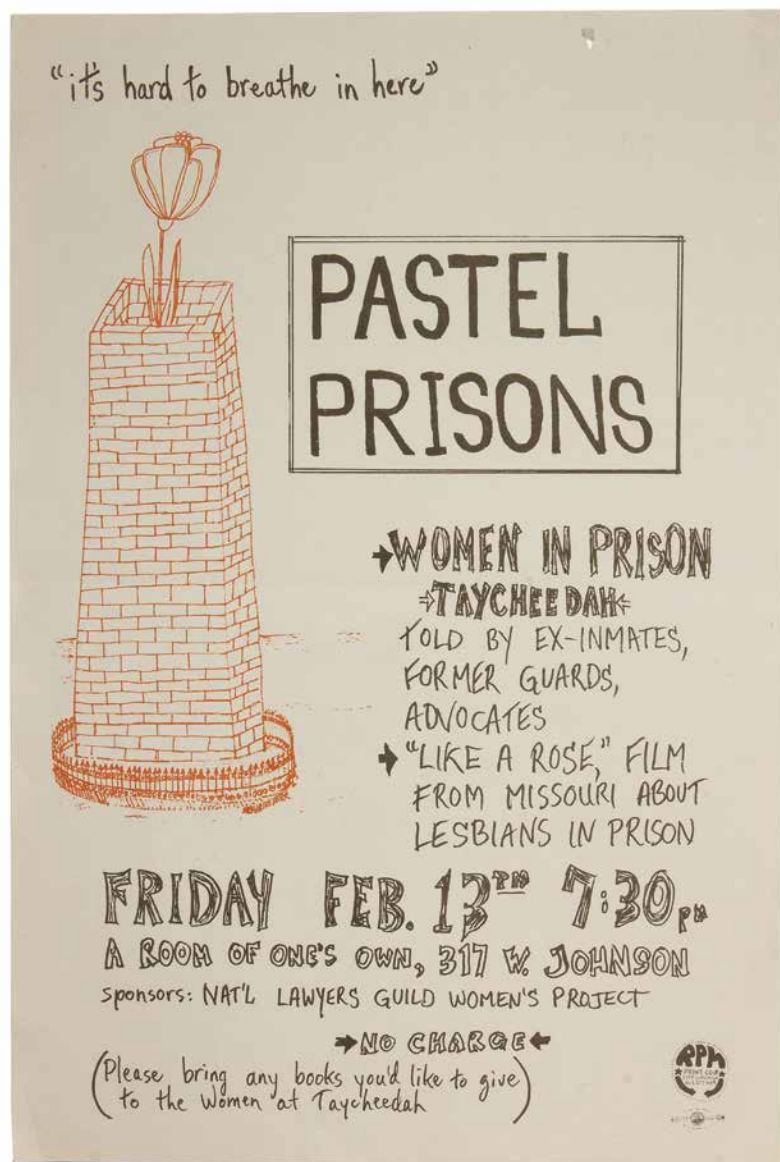 “it's hard to breathe in here”
PASTEL
PRISONS
WOMEN IN PRISON
TAYCHEEDAH
TOLD BY EX-INMATES,
FORMER GUARDS,
ADVOCATES
“LIKE A ROSE,” FILM
FROM MISSOURI ABOUT
LESBIANS IN PRISON
FRIDAY FEB. 13TH 7:30 PM
A ROOM OF ONE'S OWN, 317 W. JOHNSON
sponsors: NAT'L LAWYERS GUILD WOMEN'S PROJECT
NO CHARGE
(Please bring any books you'd like to give
to the women at Taycheedah)
RPM
PRINT CO-OP